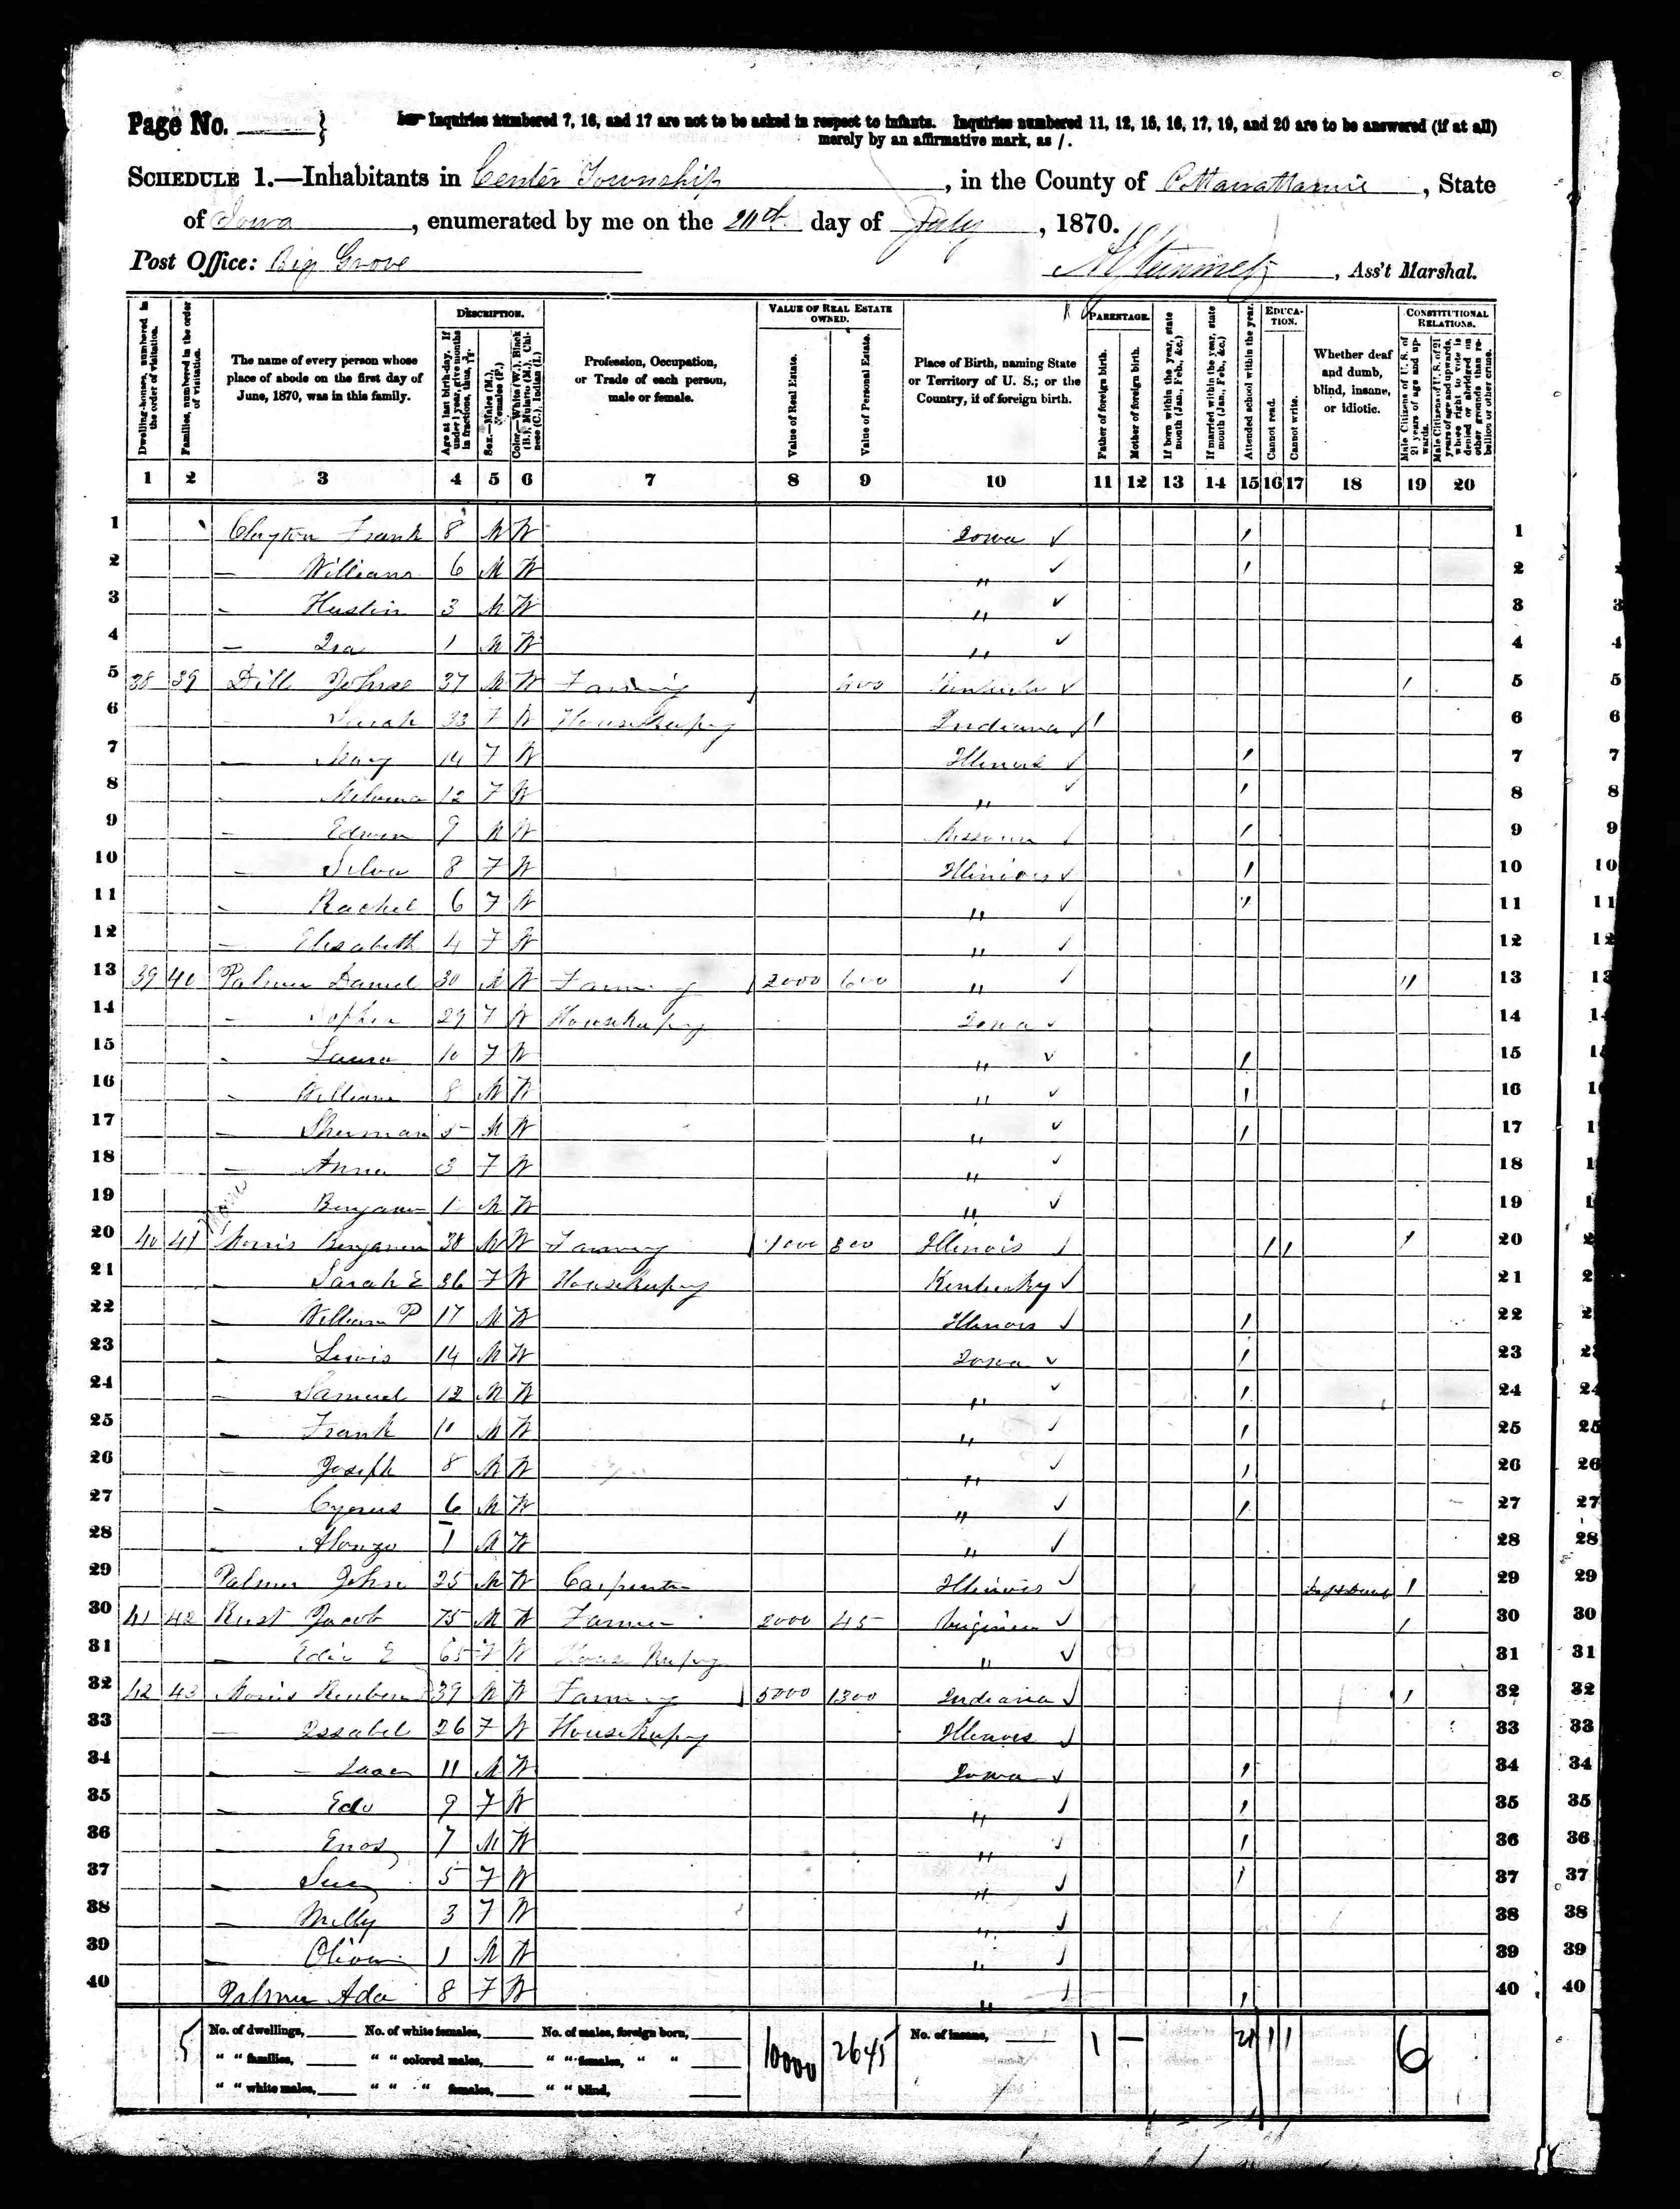 Page No. }
Inquiries numbered 7, 16, and 17 are not to be asked in respect to infants. Inquiries numbered 11, 12, 15, 16, 17, 19, and 20 are to be answered (if at all)
merely by an affirmative mark, as /.
SCHEDULE 1.—Inhabitants in Center Township, in the County of Pottawattamie, State
of Iowa, enumerated by me on the day of July, 1870.
Post Office: Big Grove , Ass't Marshal.
Dwelling-houses, numbered in the order of visitation.
Families, numbered in the order of visitation.
The name of every person whose place of abode on the first day of June, 1870, was in this family.
DESCRIPTION.
Age at last birth-day. If under 1 year, give months in fractions, thus,
Sex.—Males (M.), Females (F.)
Color.—White (W.), Black (B.), Mulatto (M.), Chinese (C.), Indian (I.)
Profession, Occupation, or Trade of each person, male or female.
VALUE OF REAL ESTATE OWNED.
Value of Real Estate.
Value of Personal Estate.
Place of Birth, naming State or Territory of U. S.; or the Country, if of foreign birth.
PARENTAGE.
Father of foreign birth.
Mother of foreign birth.
If born within the year, state month (Jan. Feb., &c.)
If married within the year, state month (Jan. Feb., &c.)
Attended school within the year.
EDUCATION.
Cannot read.
Cannot write.
Whether deaf and dumb, blind, insane, or idiotic.
CONSTITUTIONAL RELATIONS.
Male Citizens of U. S. of 21 years of age and upwards.
Male Citizens of U. S. of 21 years of age and upwards, whose right to vote is denied or abridged on other grounds than rebellion or other crime.
1 2 3 4 5 6 7 8 9 10 11 12 13 14 15 16 17 18 19 20
1 Clayton Frank 8 M W Iowa ✓ / 1
2 — William 6 M W " ✓ / 2
3 — Hustin 3 M W " ✓ 3
4 — Ira 1 M W " ✓ 4
5 38 39 Dill 37 M W Farming 400 Kentucky ✓ / 5
6 — Sarah 33 F W Housekeeping Indiana ✓ / 6
7 — Mary 14 F W Illinois ✓ / 7
8 — 12 F W " ✓ / 8
9 — Edwin 9 M W Missouri ✓ / 9
10 — Silva 8 F W Illinois ✓ / 10
11 — Rachel 6 F W " ✓ / 11
12 — Elisabeth 4 F W " ✓ 12
13 39 40 Palmer Daniel 30 M W Farming 2000 600 " ✓ / 13
14 — Sophia 29 F W Housekeeping Iowa ✓ 14
15 — Laura 10 F W " ✓ / 15
16 — William 8 M W " ✓ / 16
17 — Sherman 5 M W " ✓ / 17
18 — Anna 3 F W " ✓ 18
19 Benjamin 1 M W " ✓ 19
20 40 41 Morris Benjamin 38 M W Farming 1000 300 Illinois ✓ / / / 20
21 — Sarah E 36 F W Housekeeping Kentucky ✓ 21
22 — William P 17 M W Illinois ✓ / 22
23 — Lewis 14 M W Iowa ✓ / 23
24 — Samuel 12 M W " ✓ / 24
25 — Frank 10 M W " ✓ / 25
26 — Joseph 8 M W " ✓ / 26
27 — Cyrus 6 M W " ✓ / 27
28 — Alonzo 1 M W " ✓ 28
29 Palmer John 25 M W Carpenter Illinois ✓ Deaf & Dumb / 29
30 41 42 Rust Jacob 75 M W Farmer 2000 45 Virginia ✓ / 30
31 — Edie E 65 F W House Keeping " ✓ 31
32 42 43 Morris Reuben 39 M W Farming 5000 1300 Indiana ✓ / 32
33 — Issabel 26 F W Housekeeping Illinois ✓ 33
34 — Isaac 11 M W Iowa ✓ / 34
35 — 9 F W " ✓ / 35
36 — Enos 7 M W " ✓ / 36
37 — 5 F W " ✓ / 37
38 — Milly 3 F W " ✓ 38
39 — Oliver 1 M W " ✓ 39
40 Palmer Ada 8 F W " ✓ / 40
5 No. of dwellings, No. of white females, No. of males, foreign born, 10000 2645 No. of insane, 1 — 21 1 1 6
" " families, " " colored males, " " females, " "
" " white males, " " " females, " " blind,